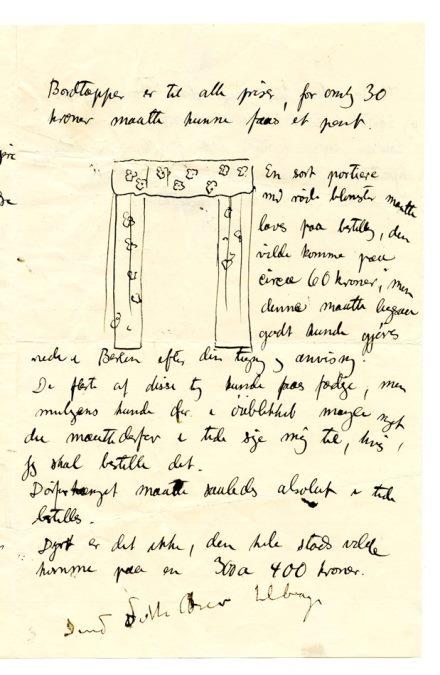 Bordtæpper er til alle priser, for omkr 30
kroner maatte kunne faas et pent.
En sort portiere
med røde blomster maatte
laves paa bestilling, den
vilde komme paa
circa 60 kroner, men
denne maatte
godt kunde gjøres
nede i Berlin efter din tegning og anvisning.
De fleste af disse ting kunde faaes færdige, men
muligens kunde der i øieblikket mangle noget
du maatte derfor i tide sige mig til, hvis
jeg skal bestille det.
Dörforhænget maatte saaledes absolut i tide
bestilles.
Dyrt er det ikke, den hele stads vilde
komme paa en 300 a 400 kroner.